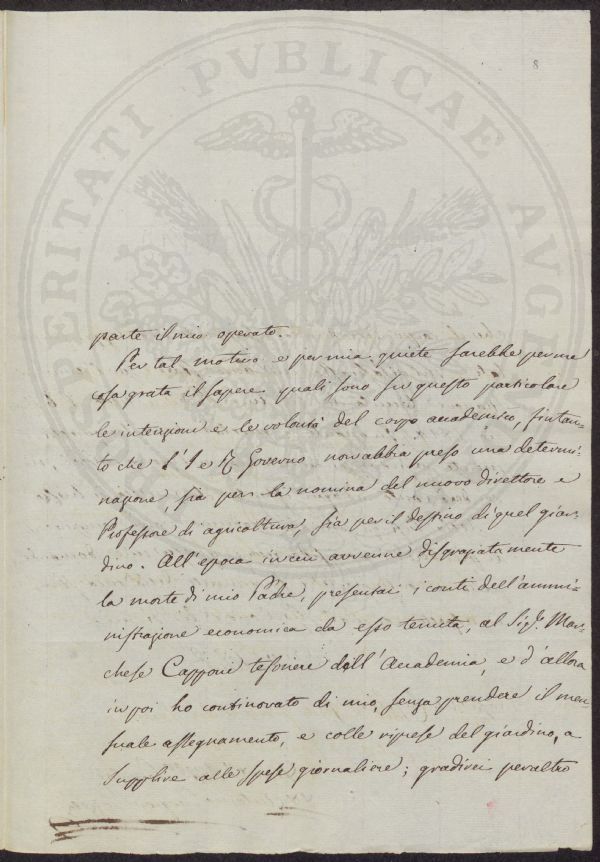 8
PROSPERITATI PVBLICAE AVGENDAE
parte il mio operato.
Per tal motivo e per mia quiete sarebbe per me
cosa grata il sapere quali sono su questo particolare
le intenzioni e le volontà del corpo accademico, fintan-
to che l'I e R Governo non abbia preso una determi-
nazione, sia per la nomina del nuovo direttore e
Professore di agricoltura, sia per il destino di quel giar-
dino. All'epoca in cui avvenne disgraziatamente
la morte di mio Padre, presentai i conti dell'ammi-
nistrazione economica da esso tenuta, al Sigr. Mar-
chese Capponi tesoriere dell'Accademia, e d'allora
in poi ho continovato di mio, senza prendere il men-
suale assegnamento, e colle riprese del giardino, a
supplire alle spese giornaliere; gradirei peraltro